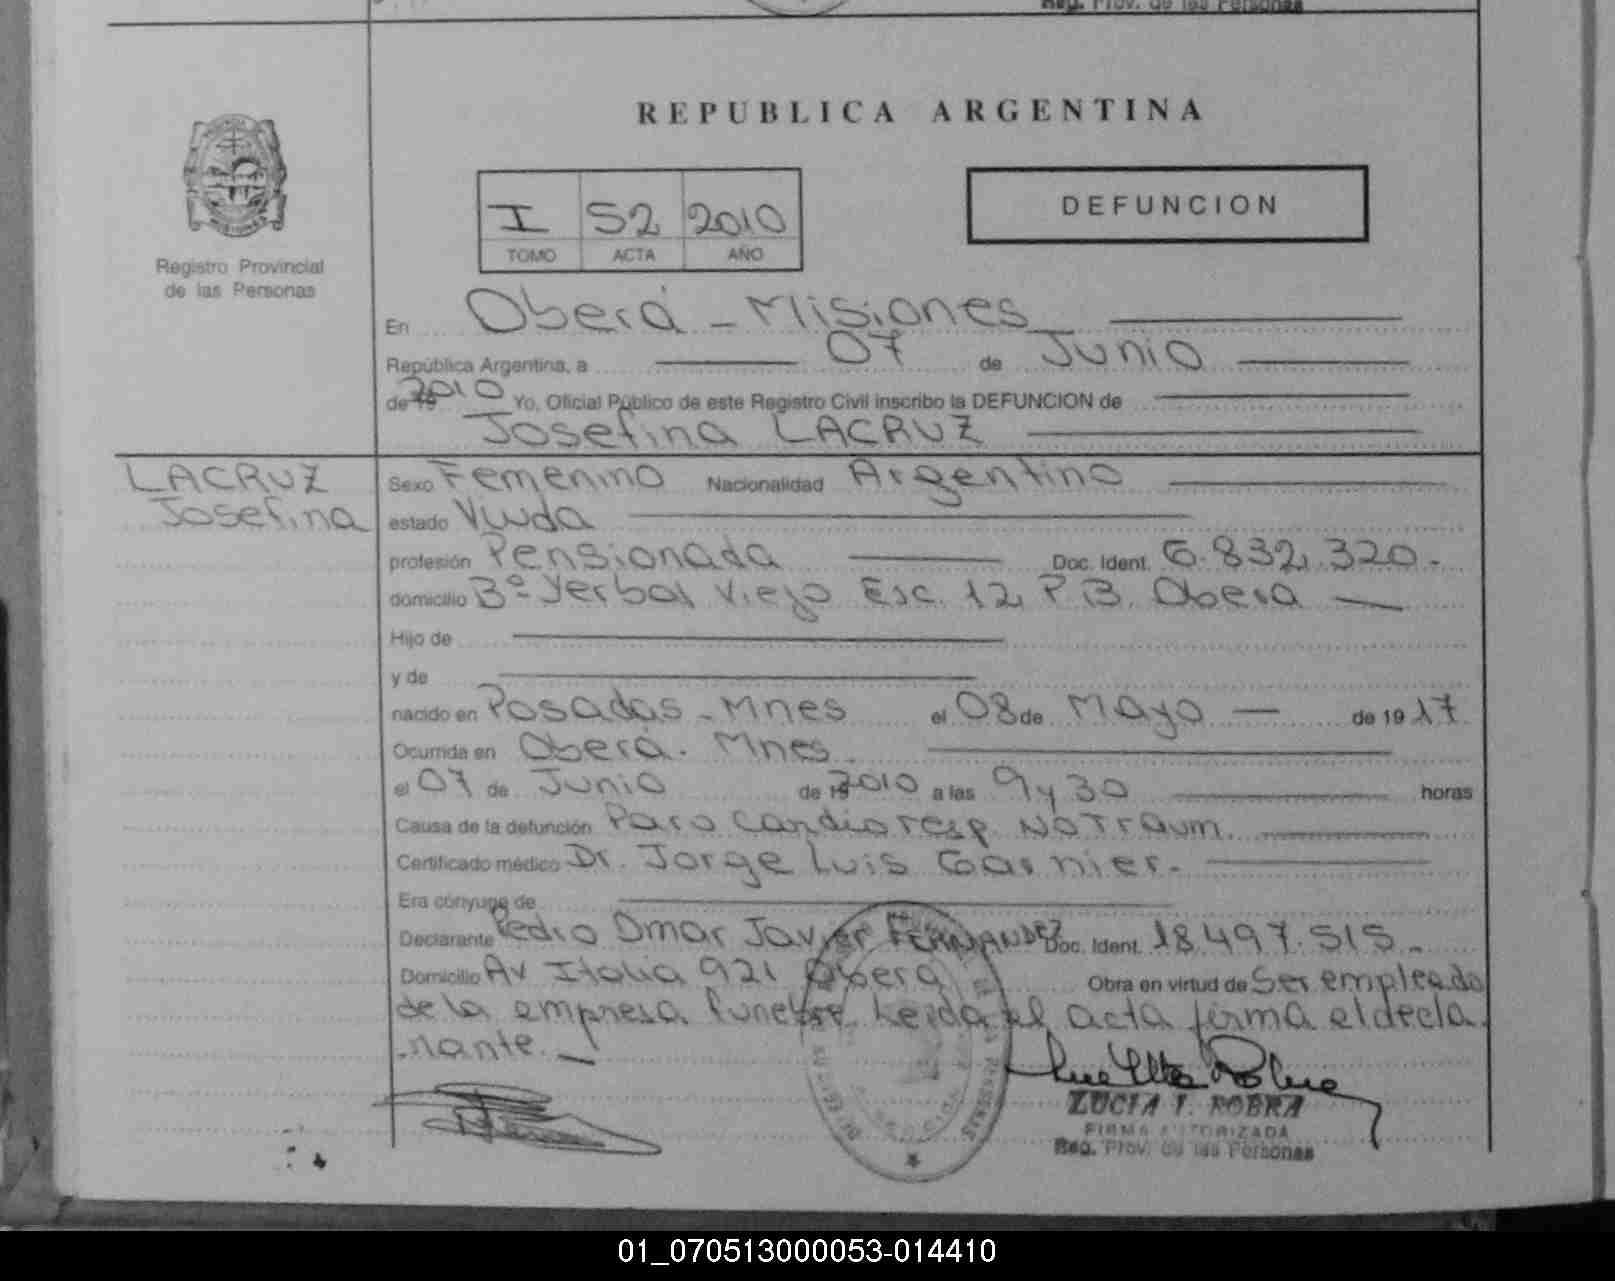 Reg. Prov. de las Personas
REPUBLICA ARGENTINA
I 52 2010
TOMO ACTA AÑO
DEFUNCION
Registro Provincial
de las Personas
En Oberá - Misiones
República Argentina, a 07 de Junio
de 19 2010 Yo, Oficial Público de este Registro Civil inscribo la DEFUNCION de
Josefina LACRUZ
LACRUZ
Josefina
Sexo Femenino Nacionalidad Argentino
estado Viuda
profesión Pensionada Doc. Ident. 6.832.320.-
domicilio Bº Yerbal Viejo Esc. 12 P.B. Oberá
Hijo de
y de
nacido en Posadas - Mnes el 08 de Mayo de 1917
Ocurrida en Oberá. Mnes.
el 07 de Junio de 19 2010 a las 9 y 30 horas
Causa de la defunción Paro cardioresp. No Traum.
Certificado médico Dr. Jorge Luis Garnier.-
Era cónyuge de
Declarante Pedro Omar Javier FERNANDEZ Doc. Ident. 18.497.515.-
Domicilio Av Italia 921 Oberá Obra en virtud de Ser empleado
de la empresa funebre. Leida el acta firma el decla
rante. -
LUCIA I. ROBRA
FIRMA AUTORIZADA
Reg. Prov. de las Personas
01_070513000053-014410